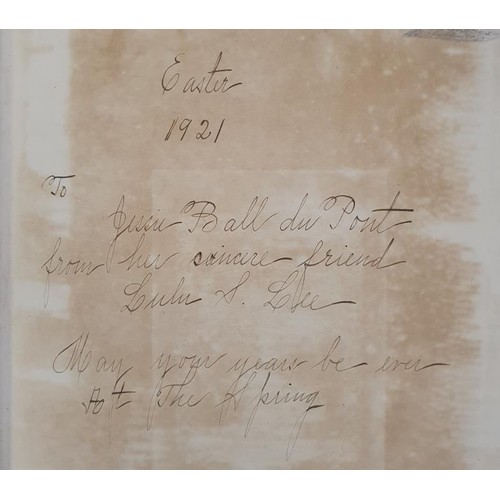 Easter
1921
To
Jessie Ball du Pont
from her sincere friend
Lulu S. Lee
May your years be ever
At The Spring